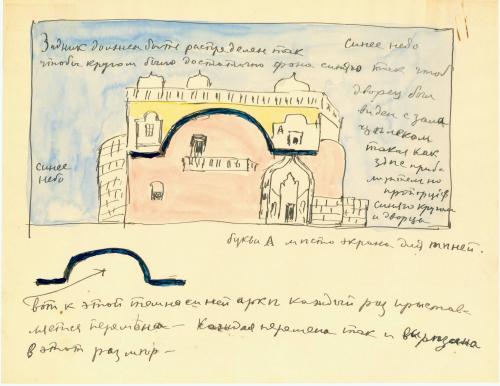 Задник должен быть распределен так
чтобы кругом было достаточно фона синяго так чтоб
Синее небо
дворец был
виден с зала
целиком
так как
здесь
пропорция
синяго кругом
и дворца
Синее
небо
А
буква А место экрана для теней.
вот к этой темносиней арке каждый раз
перемена — каждая перемена так и вырезана
в этот размер —